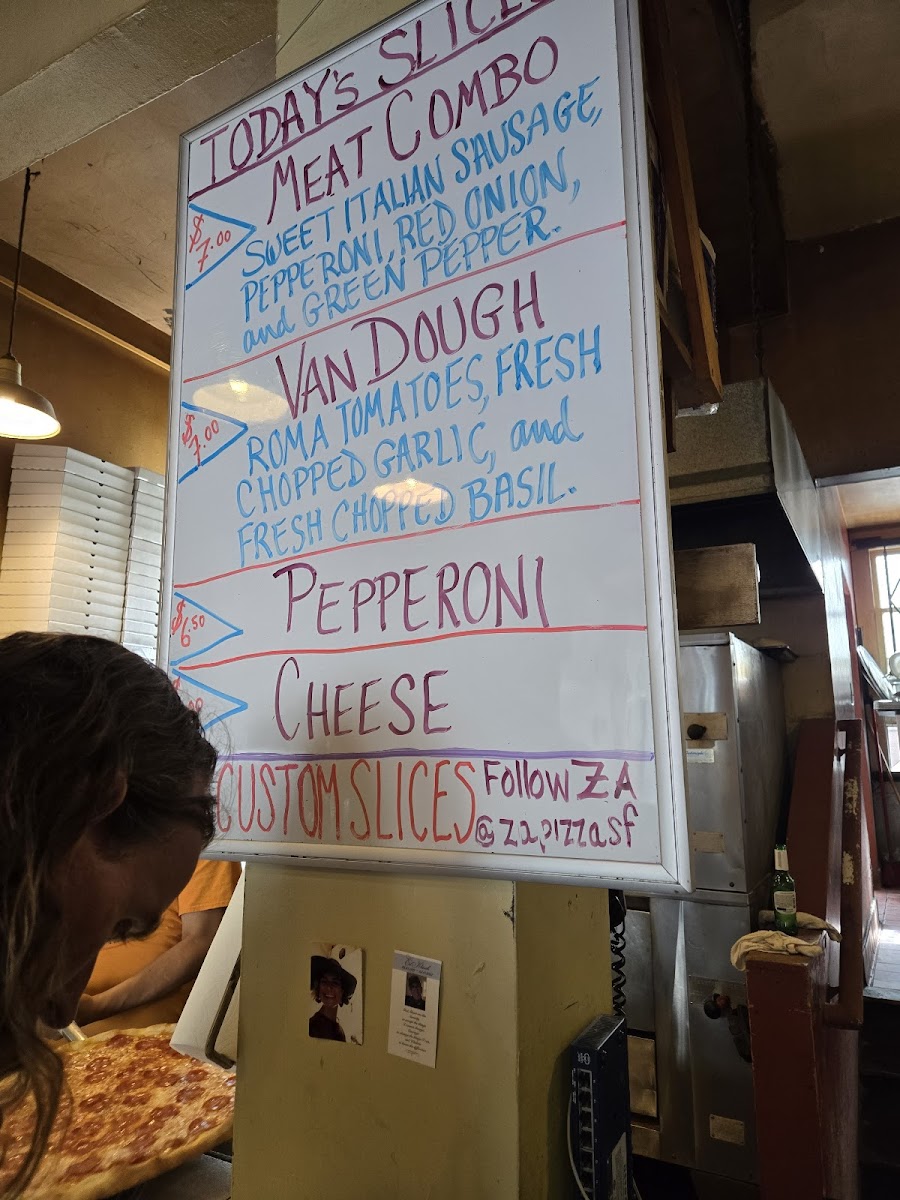 TODAY'S SLICES
MEAT COMBO
$7.00
SWEET ITALIAN SAUSAGE,
PEPPERONI, RED ONION,
and GREEN PEPPER.
VAN DOUGH
$7.00
ROMA TOMATOES, FRESH
CHOPPED GARLIC, and
FRESH CHOPPED BASIL.
$6.50
PEPPERONI
CHEESE
CUSTOM SLICES
FOLLOW ZA
@zapizzasf